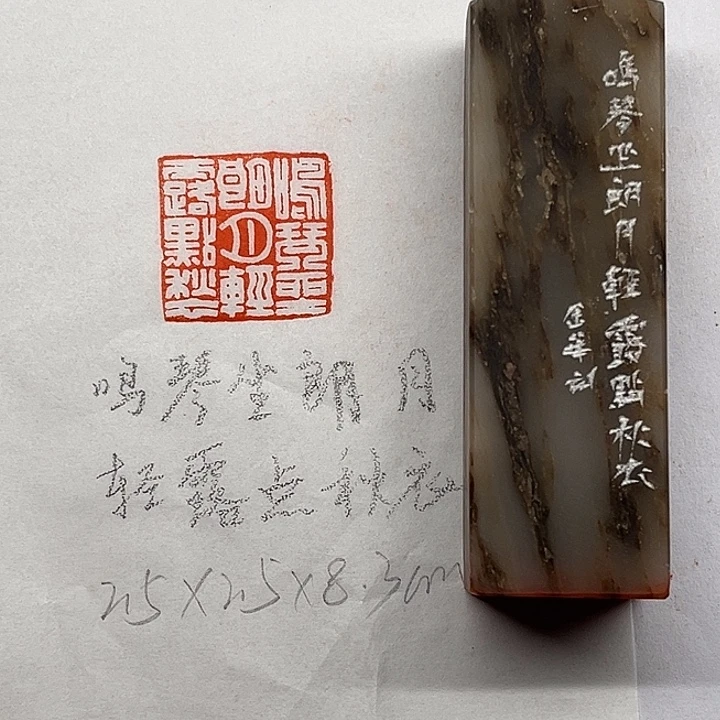 鳴琴坐
朗月輕
露點秋衣
鸣琴坐朗月
轻露点秋衣
25X25X8.3cm
鳴琴坐朗月輕露點秋衣
金華